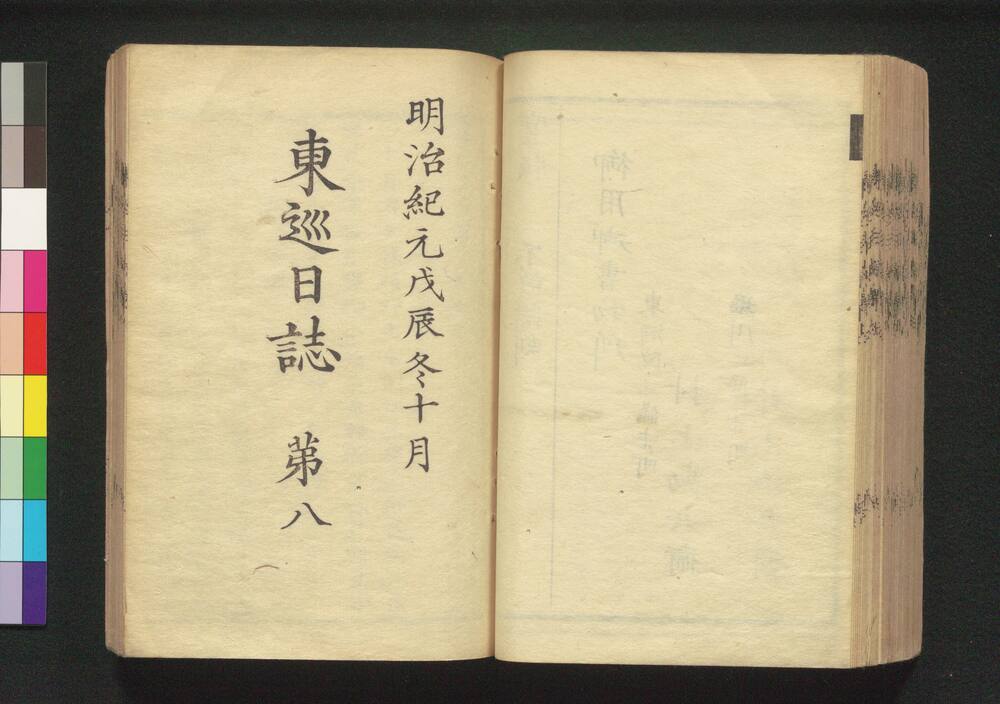 明治紀元戊辰冬十月
東巡日誌 第八